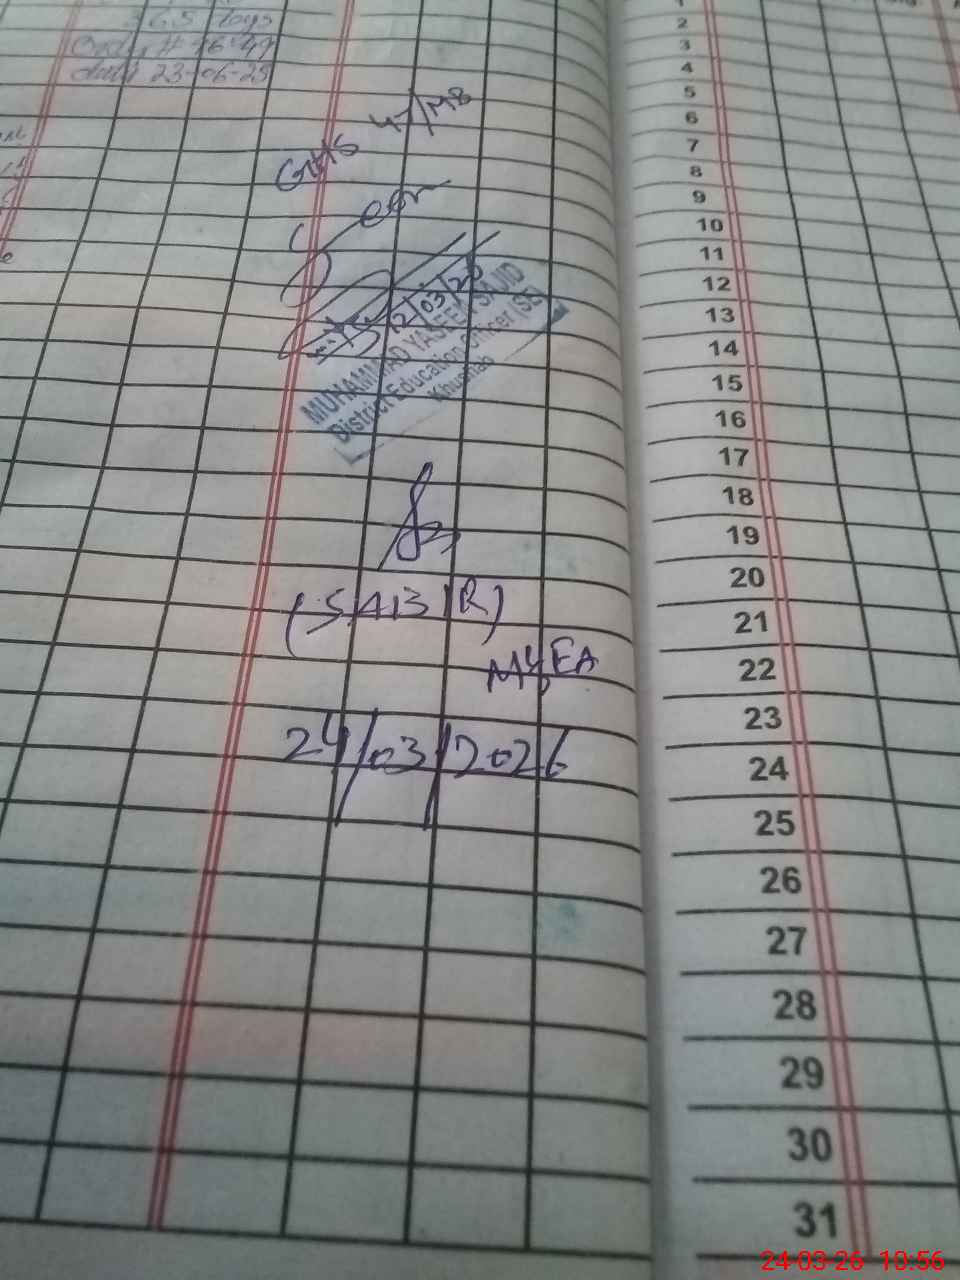 365 Days
Order # 16-49
dated 23-06-25
GHS 47/MB
12/03/26
MUHAMMAD YASEEN SAJID
District Education Officer (SE)
Khushab
(SABIR)
MEA
24/03/2026
1
2
3
4
5
6
7
8
9
10
11
12
13
14
15
16
17
18
19
20
21
22
23
24
25
26
27
28
29
30
31
24-03-26 10:56